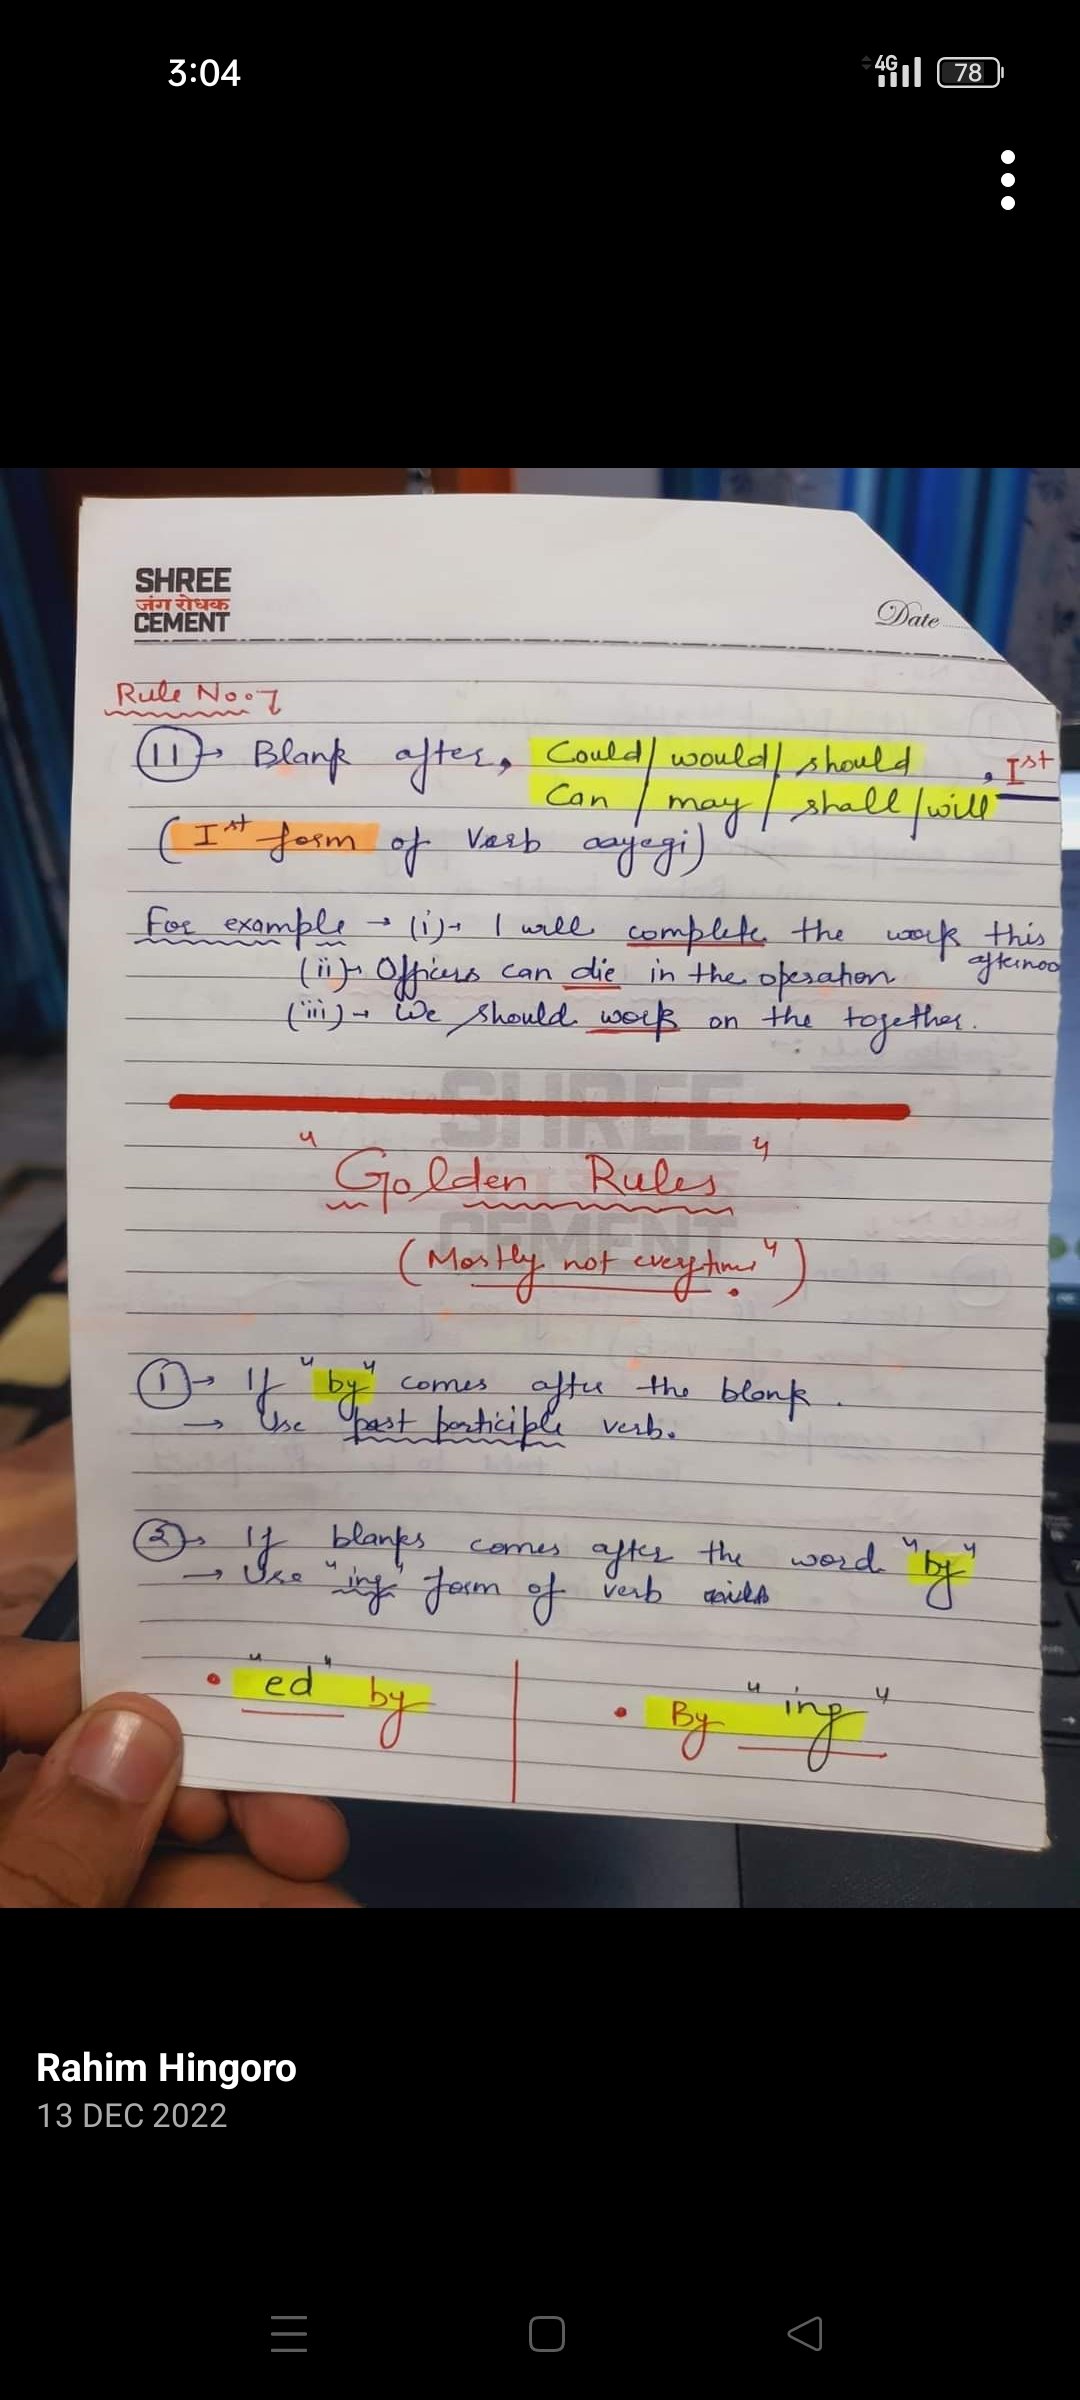 3:04
4G
78
SHREE
जंग रोधक
CEMENT
Date
Rule No.7
11 → Blank after, Could/would/should , Ist
Can / may / shall / will
(Ist form of Verb aayegi)
For example → (i)→ I will complete the work this
afternoo
(ii)→ Officers can die in the operation
(iii)→ We should work on the together.
SHREE
CEMENT
"Golden Rules"
(Mostly not everytime")
1 → If "by" comes after the blank.
→ Use past participle verb.
2 → If blanks comes after the word "by"
→ Use "ing" form of verb
• "ed" by
• By "ing"
Rahim Hingoro
13 DEC 2022